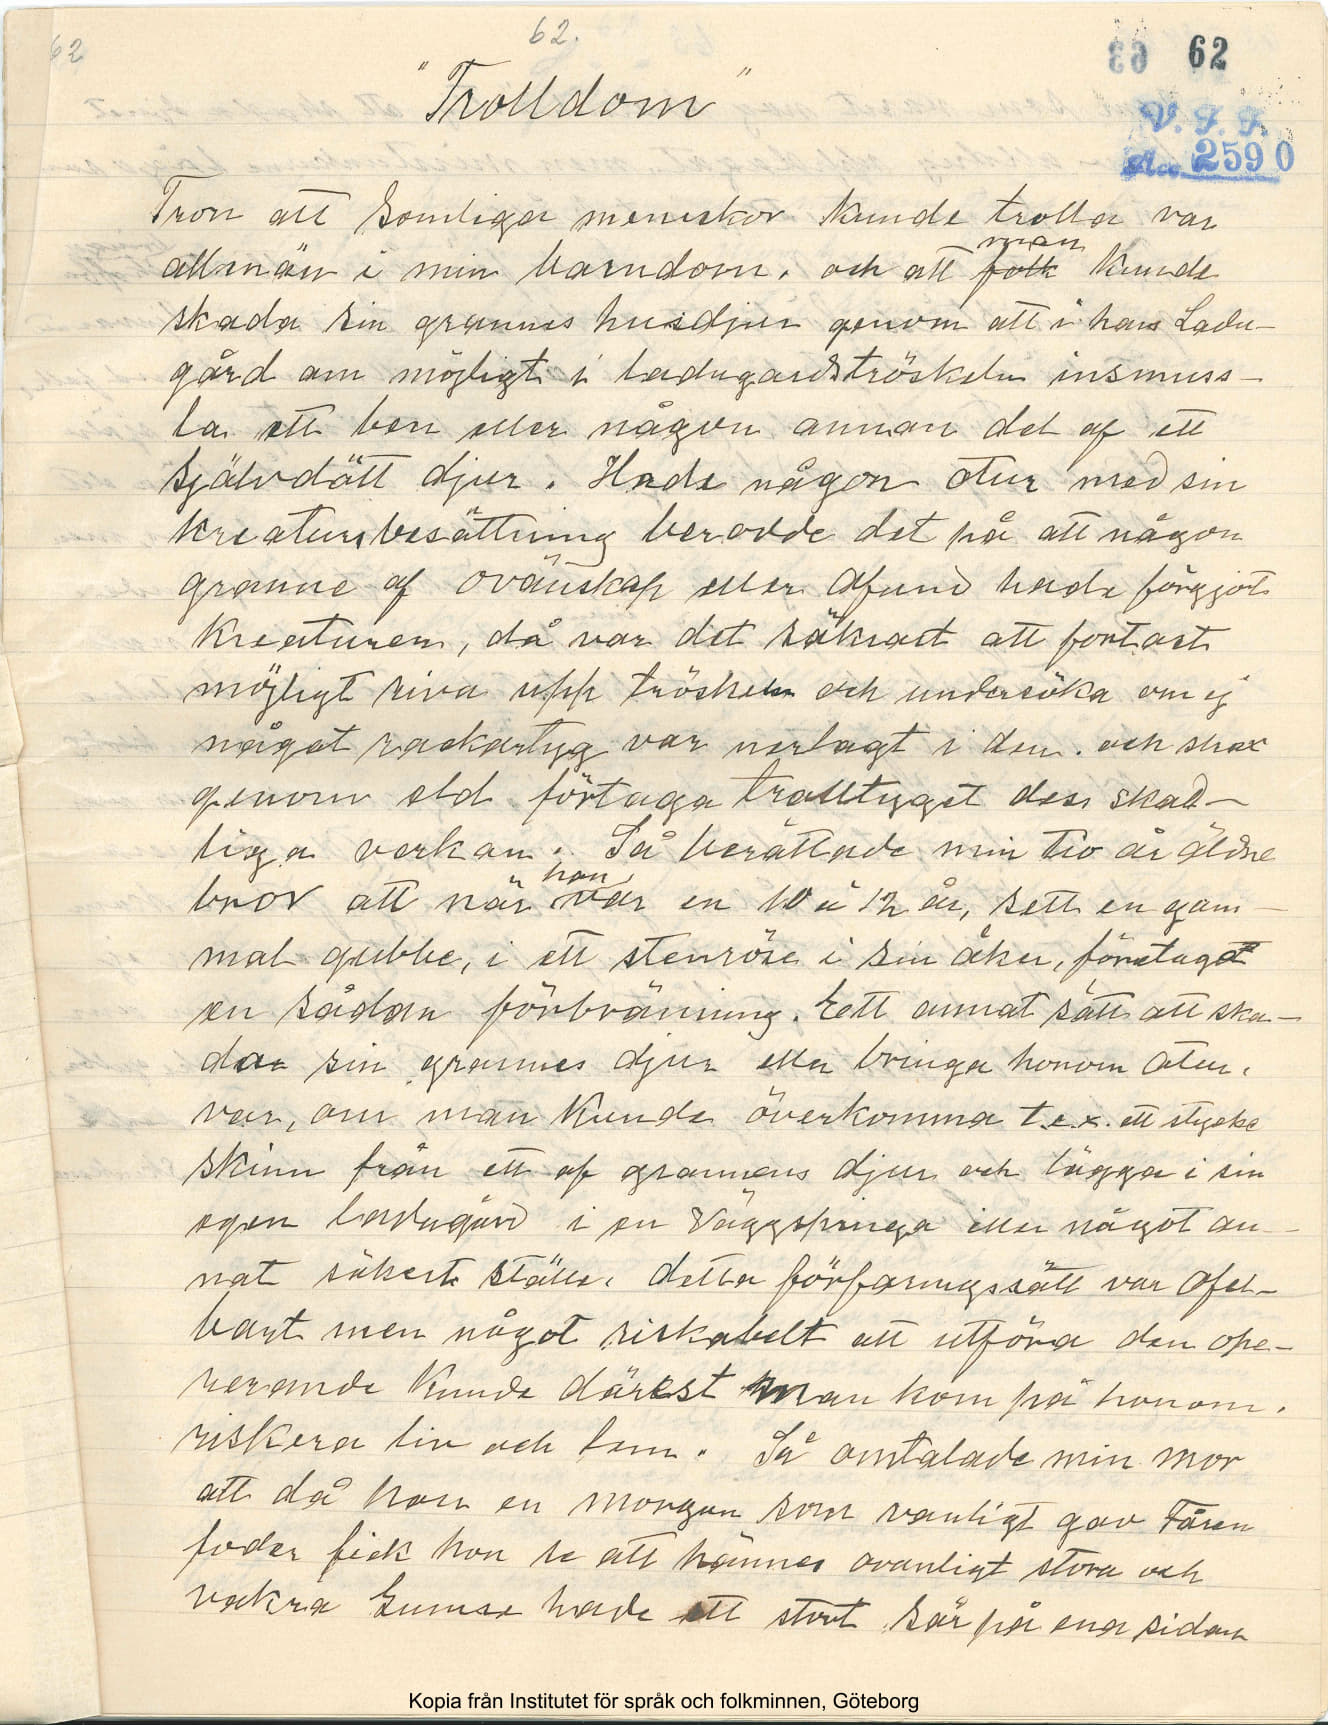 62
62.
63 62
"Trolldom"
V. F. F.
Acc 2590
Tron att somliga meniskor kunde trolla var
allmän i min barndom. och att man folk kunde
skada sin grannes husdjur genom att i hans Ladu-
gård om möjligt i ladugardströskeln insmuss-
la ett ben eller någon annan del af ett
självdött djur. Hade någon otur med sin
kreatursbesättning berodde det på att någon
granne af ovänskap eller afund hade förgjort
kreaturen, då var det säkrast att fortast
möjligt riva upp tröskeln och undersöka om ej
något rackartyg var nerlagt i den. och strax
genom eld förtaga trolltyget dess skad-
liga verkan. Så berättade min tio år äldre
bror att när han var en 10 à 12 år, sett en gam-
mal gubbe, i ett stenröse i sin åker, företaget
en sådan förbränning. Ett annat sätt att ska-
da sin grannes djur eller bringa honom otur.
var, om man kunde överkomma t.e.x. ett stycke
skinn från ett af grannens djur och lägga i sin
egen ladugård i en väggspringa eller något an-
nat säkert ställe. detta förfaringssätt var ofel-
bart men något riskabelt att utföra den ope-
rerande kunde därest man kom på honom.
riskera liv och lem. Så omtalade min mor
att då hon en morgon som vanligt gav Fåren
foder fick hon se att hännes ovanligt stora och
vakra Gumse hade ett stort sår på ena sidan
Kopia från Institutet för språk och folkminnen, Göteborg